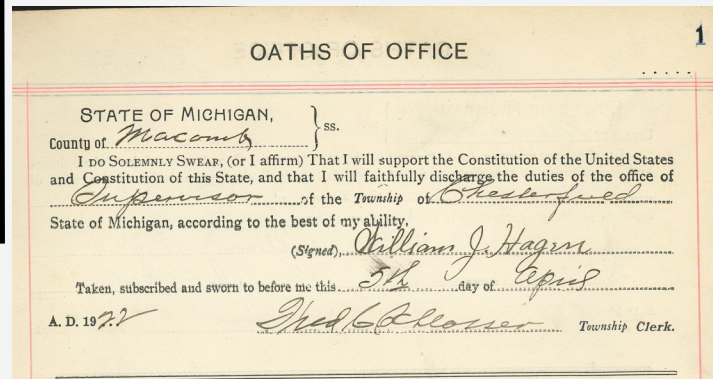 1
OATHS OF OFFICE
.....
STATE OF MICHIGAN, } ss.
County of Macomb
I DO SOLEMNLY SWEAR, (or I affirm) That I will support the Constitution of the United States
and Constitution of this State, and that I will faithfully discharge the duties of the office of
Supervisor of the Township of Chesterfield
State of Michigan, according to the best of my ability,
(Signed), William J. Hagen
Taken, subscribed and sworn to before me this 5th day of April
A. D. 1922 Fred C Township Clerk.